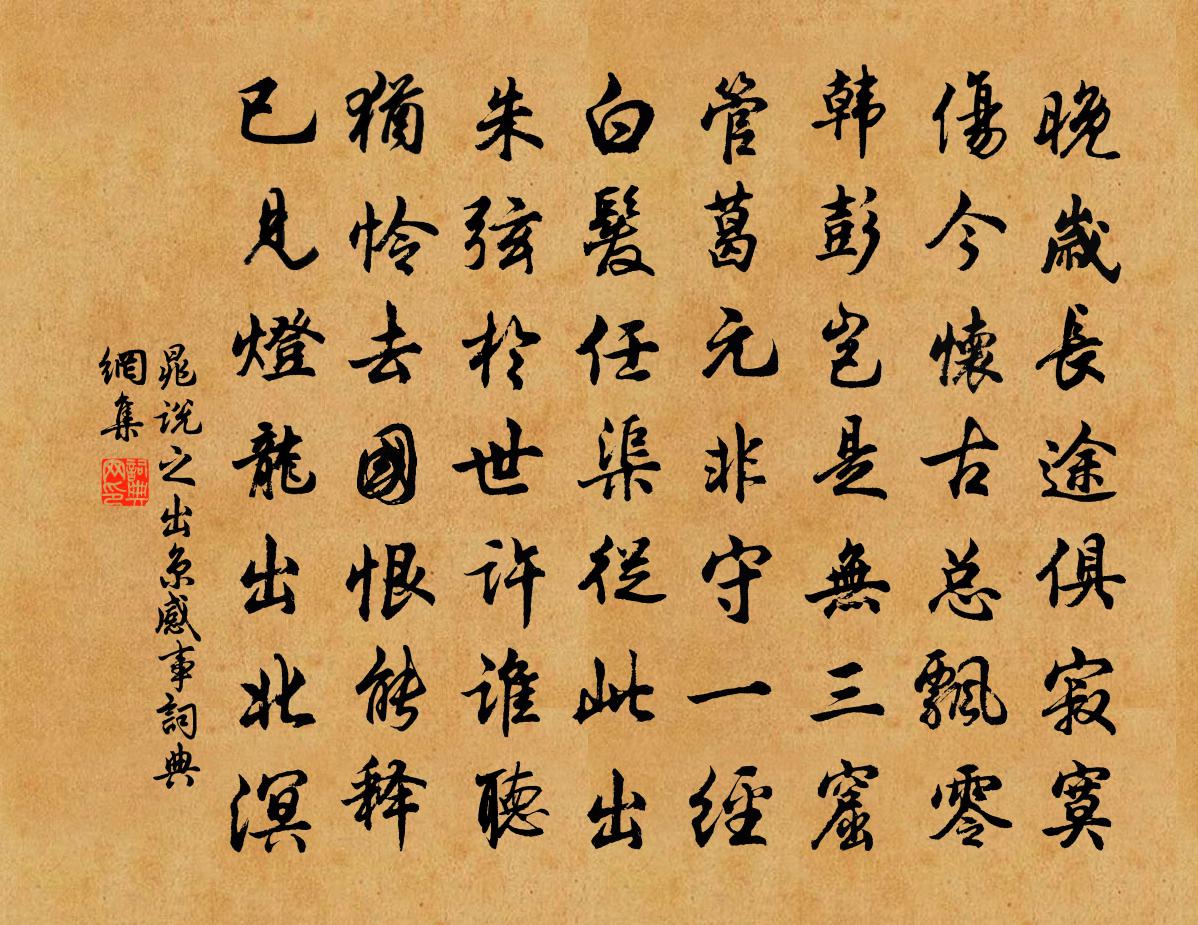 晚歲長途俱寂寞
傷今懷古总飄零
韩彭豈是無三窟
管葛元非守一經
白髮任渠從此出
朱弦於世許誰聽
猶怜去國恨能释
已見燈龍出北溟
晁説之出京感事詞典
網集
詞典網印